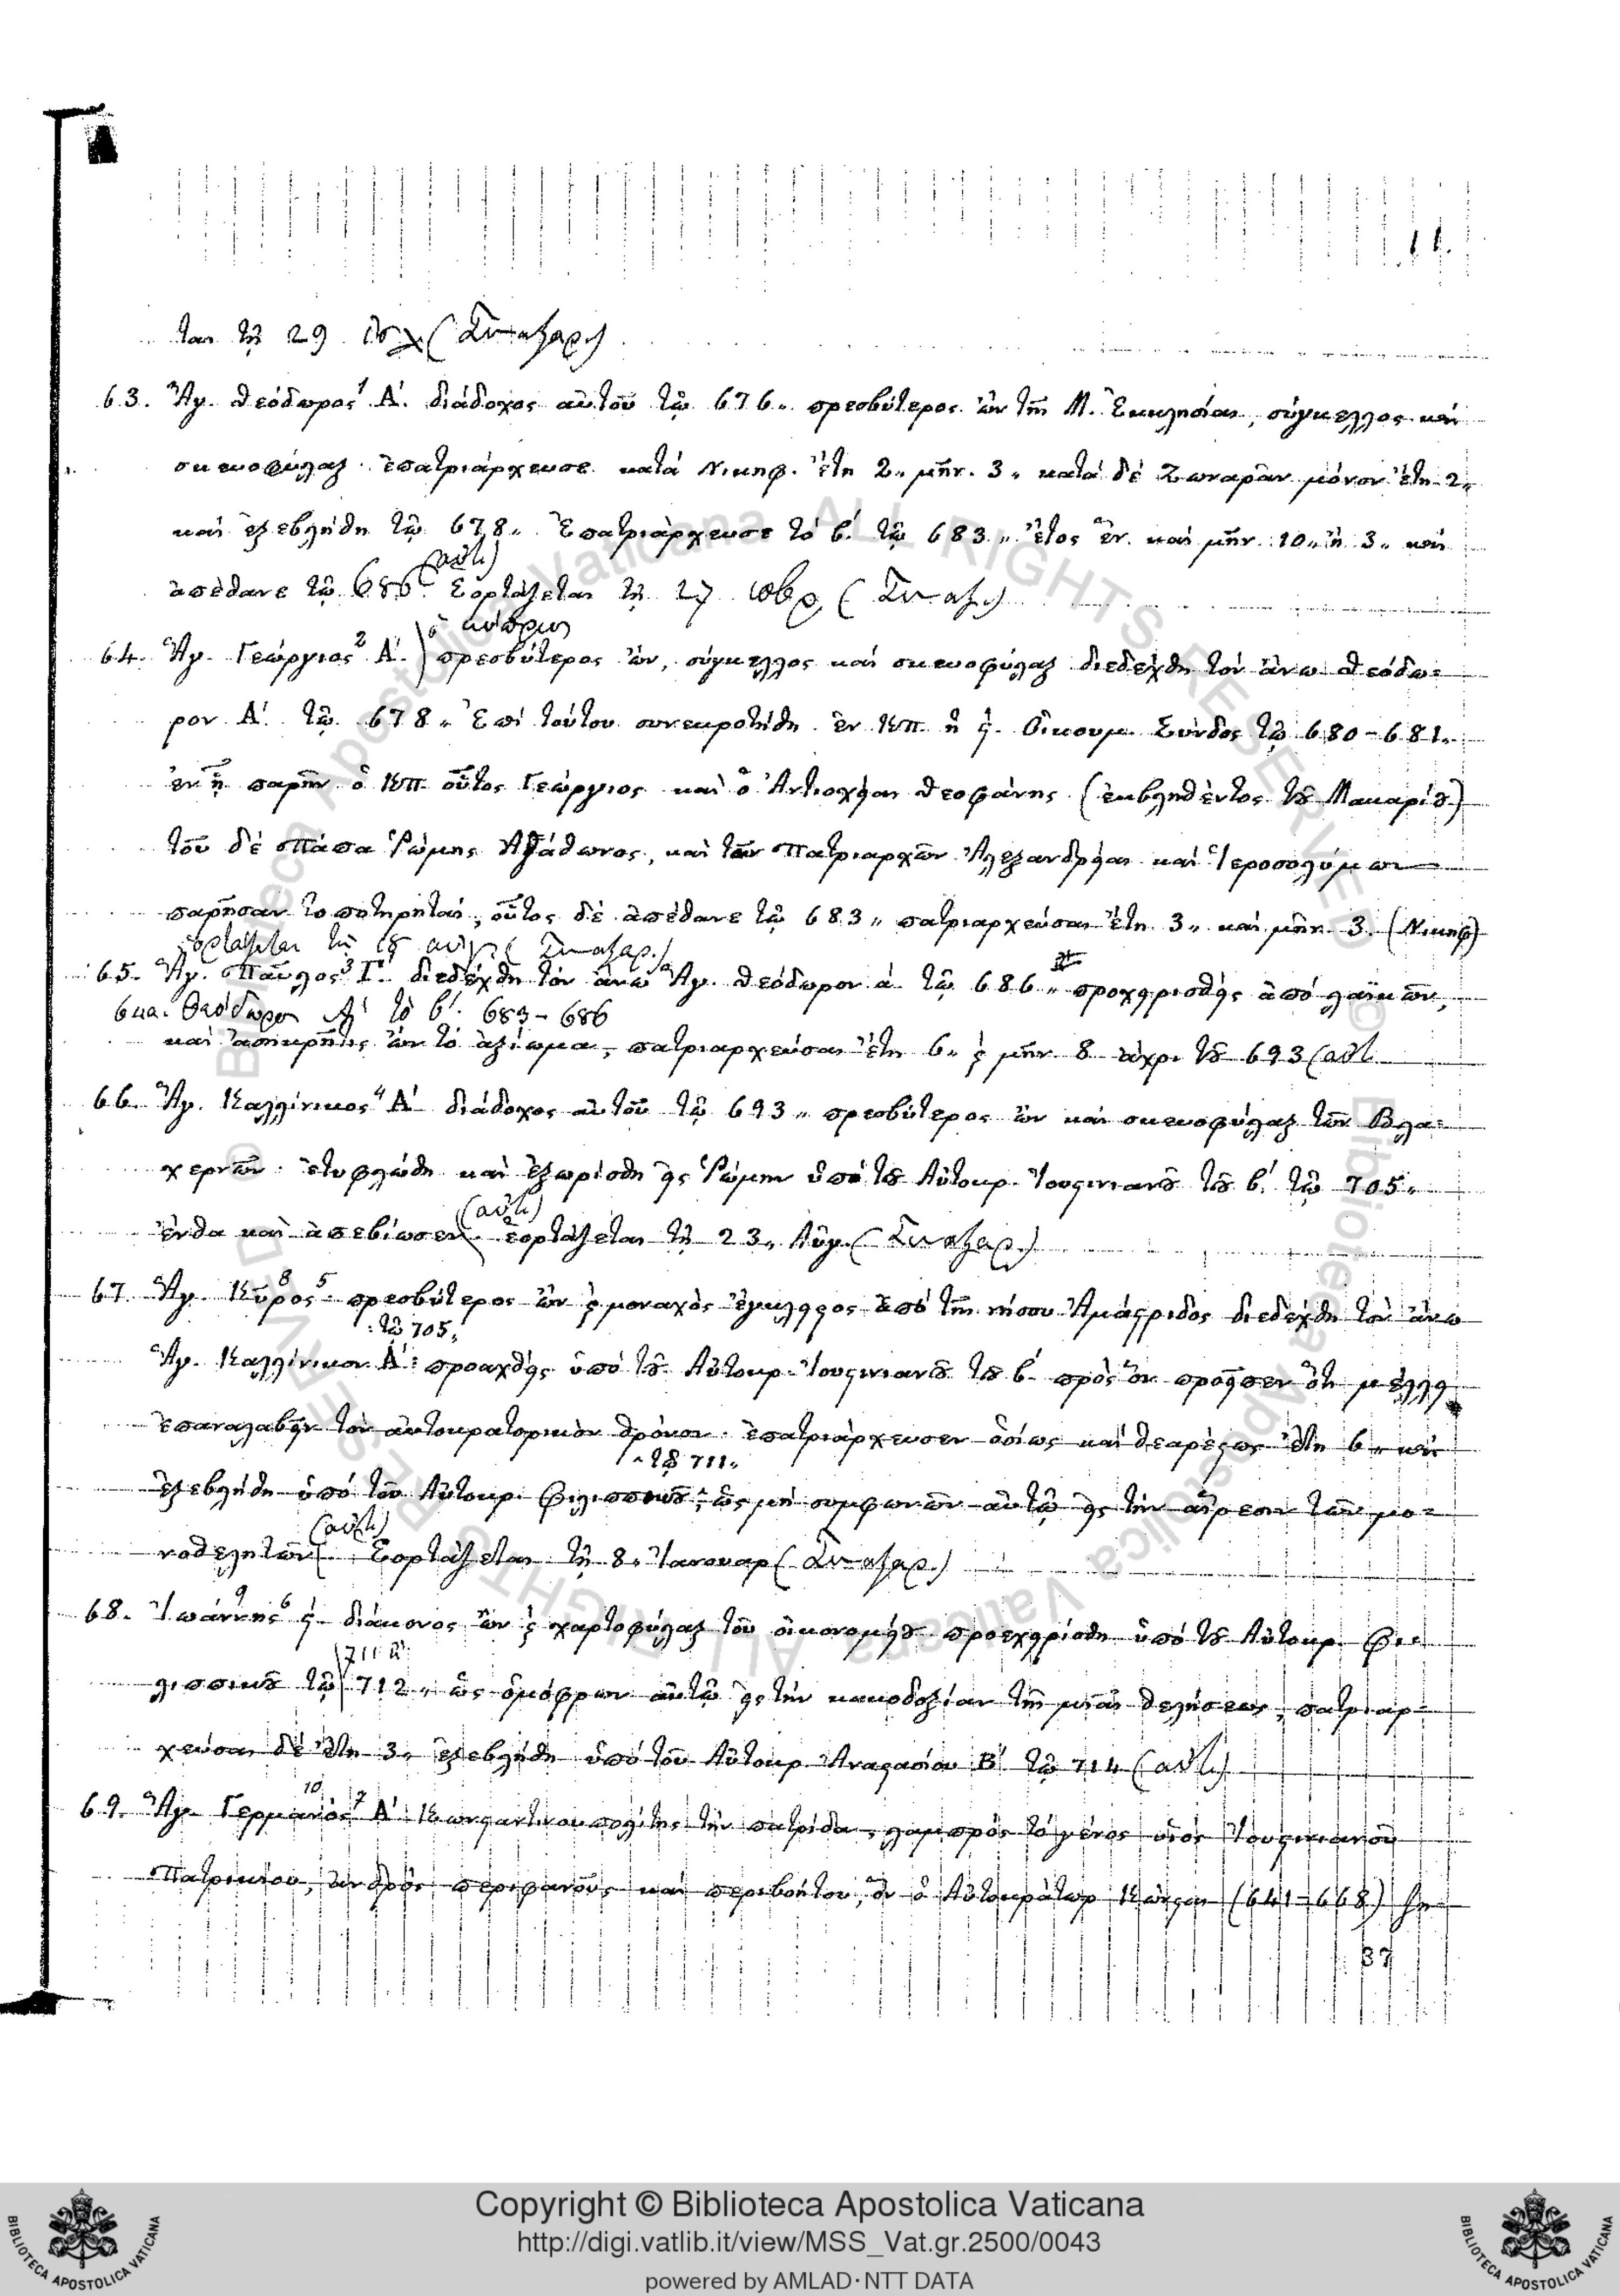 11.
ται τῇ 29 (Συναξαρ.)
63. Ἅγ. Θεόδωρος¹ Α΄. διάδοχος αὐτοῦ τῷ 676„ πρεσβύτερος ὢν τῆς Μ. Ἐκκλησίας, σύγκελλος καὶ
σκευοφύλαξ· ἐπατριάρχευσε κατὰ Νικηφ. ἔτη 2„ μῆν. 3„ κατὰ δὲ Ζωναρᾶν μόνον ἔτη 2„
καὶ ἐξεβλήθη τῷ 678„ Ἐπατριάρχευσε τὸ β΄. τῷ 683„ ἔτος ἓν καὶ μῆν. 10„ ἢ 3„ καὶ
(αὐτ.)
ἀπέθανε τῷ 686. Ἑορτάζεται τῇ 27 (Συναξ.)
ὁ Κύπριος
64. Ἅγ. Γεώργιος² Α΄. πρεσβύτερος ὤν, σύγκελλος καὶ σκευοφύλαξ διεδέχθη τὸν ἄνω Θεόδω-
ρον Α΄. τῷ 678„ Ἐπὶ τούτου συνεκροτήθη ἐν Κπ. ἡ ϛ΄. Οἰκουμ. Σύνοδος τῷ 680-681„
ἐν ᾗ παρῆν ὁ Κπ. οὗτος Γεώργιος καὶ ὁ Ἀντιοχείας Θεοφάνης (ἐκβληθέντος τοῦ Μακαρίου)
τοῦ δὲ Πάπα Ῥώμης Ἀγάθωνος, καὶ τῶν Πατριαρχῶν Ἀλεξανδρείας καὶ Ἱεροσολύμων
παρῆσαν τοποτηρηταί, οὗτος δὲ ἀπέθανε τῷ 683„ πατριαρχεύσας ἔτη 3„ καὶ μῆν. 3. (Νικηφ)
ἑορτάζεται τῇ 18 αὐγ. (Συναξαρ.)
65. Ἅγ. Παῦλος³ Γ΄. διεδέχθη τὸν ἄνω Ἅγ. Θεόδωρον ά. τῷ 686„ προχειρισθεὶς ἀπὸ λαϊκῶν,
64α. Θεόδωρος Α΄ τὸ β΄. 683-686
καὶ ἀσηκρῆτις ὢν τὸ ἀξίωμα, πατριαρχεύσας ἔτη 6„ ϗ μῆν 8 ἄχρι τοῦ 693 (αὐτ.
66. Ἅγ. Καλλίνικος⁴ Α΄ διάδοχος αὐτοῦ τῷ 693„ πρεσβύτερος ὢν καὶ σκευοφύλαξ τῶν Βλα-
χερνῶν· ἐτυφλώθη καὶ ἐξωρίσθη εἰς Ῥώμην ὑπὸ τοῦ Αὐτοκρ. Ἰουστινιανοῦ τοῦ β΄. τῷ 705„
(αὐτ.)
ἔνθα καὶ ἀπεβίωσεν. ἑορτάζεται τῇ 23„ Αὐγ. (Συναξαρ.)
67. Ἅγ. Κῦρος⁸ ⁵· πρεσβύτερος ὢν ϗ μοναχὸς ἔγκλειστος ἀπὸ τῆς νήσου Ἀμάστριδος διεδέχθη τὸν ἄνω
: τῷ 705„
Ἅγ. Καλλίνικον Α΄: προαχθεὶς ὑπὸ τοῦ Αὐτοκρ. Ἰουστινιανοῦ τοῦ β΄ πρὸς ὃν προεῖπεν ὅτι μέλλει
ἐπαναλαβεῖν τὸν αὐτοκρατορικὸν θρόνον· ἐπατριάρχευσεν ὁσίως καὶ θεαρέστως ἔτη 6„ καὶ
^ τῷ 711„
ἐξεβλήθη ὑπὸ τοῦ Αὐτοκρ. Φιλιππικοῦ, ὡς μὴ συμφωνῶν αὐτῷ εἰς τὴν αἵρεσιν τῶν μο-
(αὐτ.)
νοθελητῶν. Ἑορτάζεται τῇ 8„ Ἰανουαρ (Συναξαρ.)
68. Ἰωάννης⁹ ⁶ ϛ΄. διάκονος ὢν ϗ χαρτοφύλαξ τοῦ οἰκονομείου προεχειρίσθη ὑπὸ τοῦ Αὐτοκρ. Φι-
711 ἢ
λιππικοῦ τῷ 712„ ὡς ὁμόφρων αὐτῷ εἰς τὴν κακοδοξίαν τῆς μιᾶς θελήσεως, πατριαρ-
χεύσας δὲ ἔτη 3„ ἐξεβλήθη ὑπὸ τοῦ Αὐτοκρ. Ἀναστασίου Β΄ τῷ 714 (αὐτ.)
69. Ἅγ. Γερμανὸς¹⁰ ⁷ Α΄ Κωνσταντινουπολίτης τὴν πατρίδα, λαμπρὸς τὸ γένος υἱὸς Ἰουστινιανοῦ
Πατρικίου, ἀνδρὸς περιφανοῦς καὶ περιβοήτου, ὃν ὁ Αὐτοκράτωρ Κώνστας (641-668)
37
Copyright © Biblioteca Apostolica Vaticana
http://digi.vatlib.it/view/MSS_Vat.gr.2500/0043
powered by AMLAD·NTT DATA